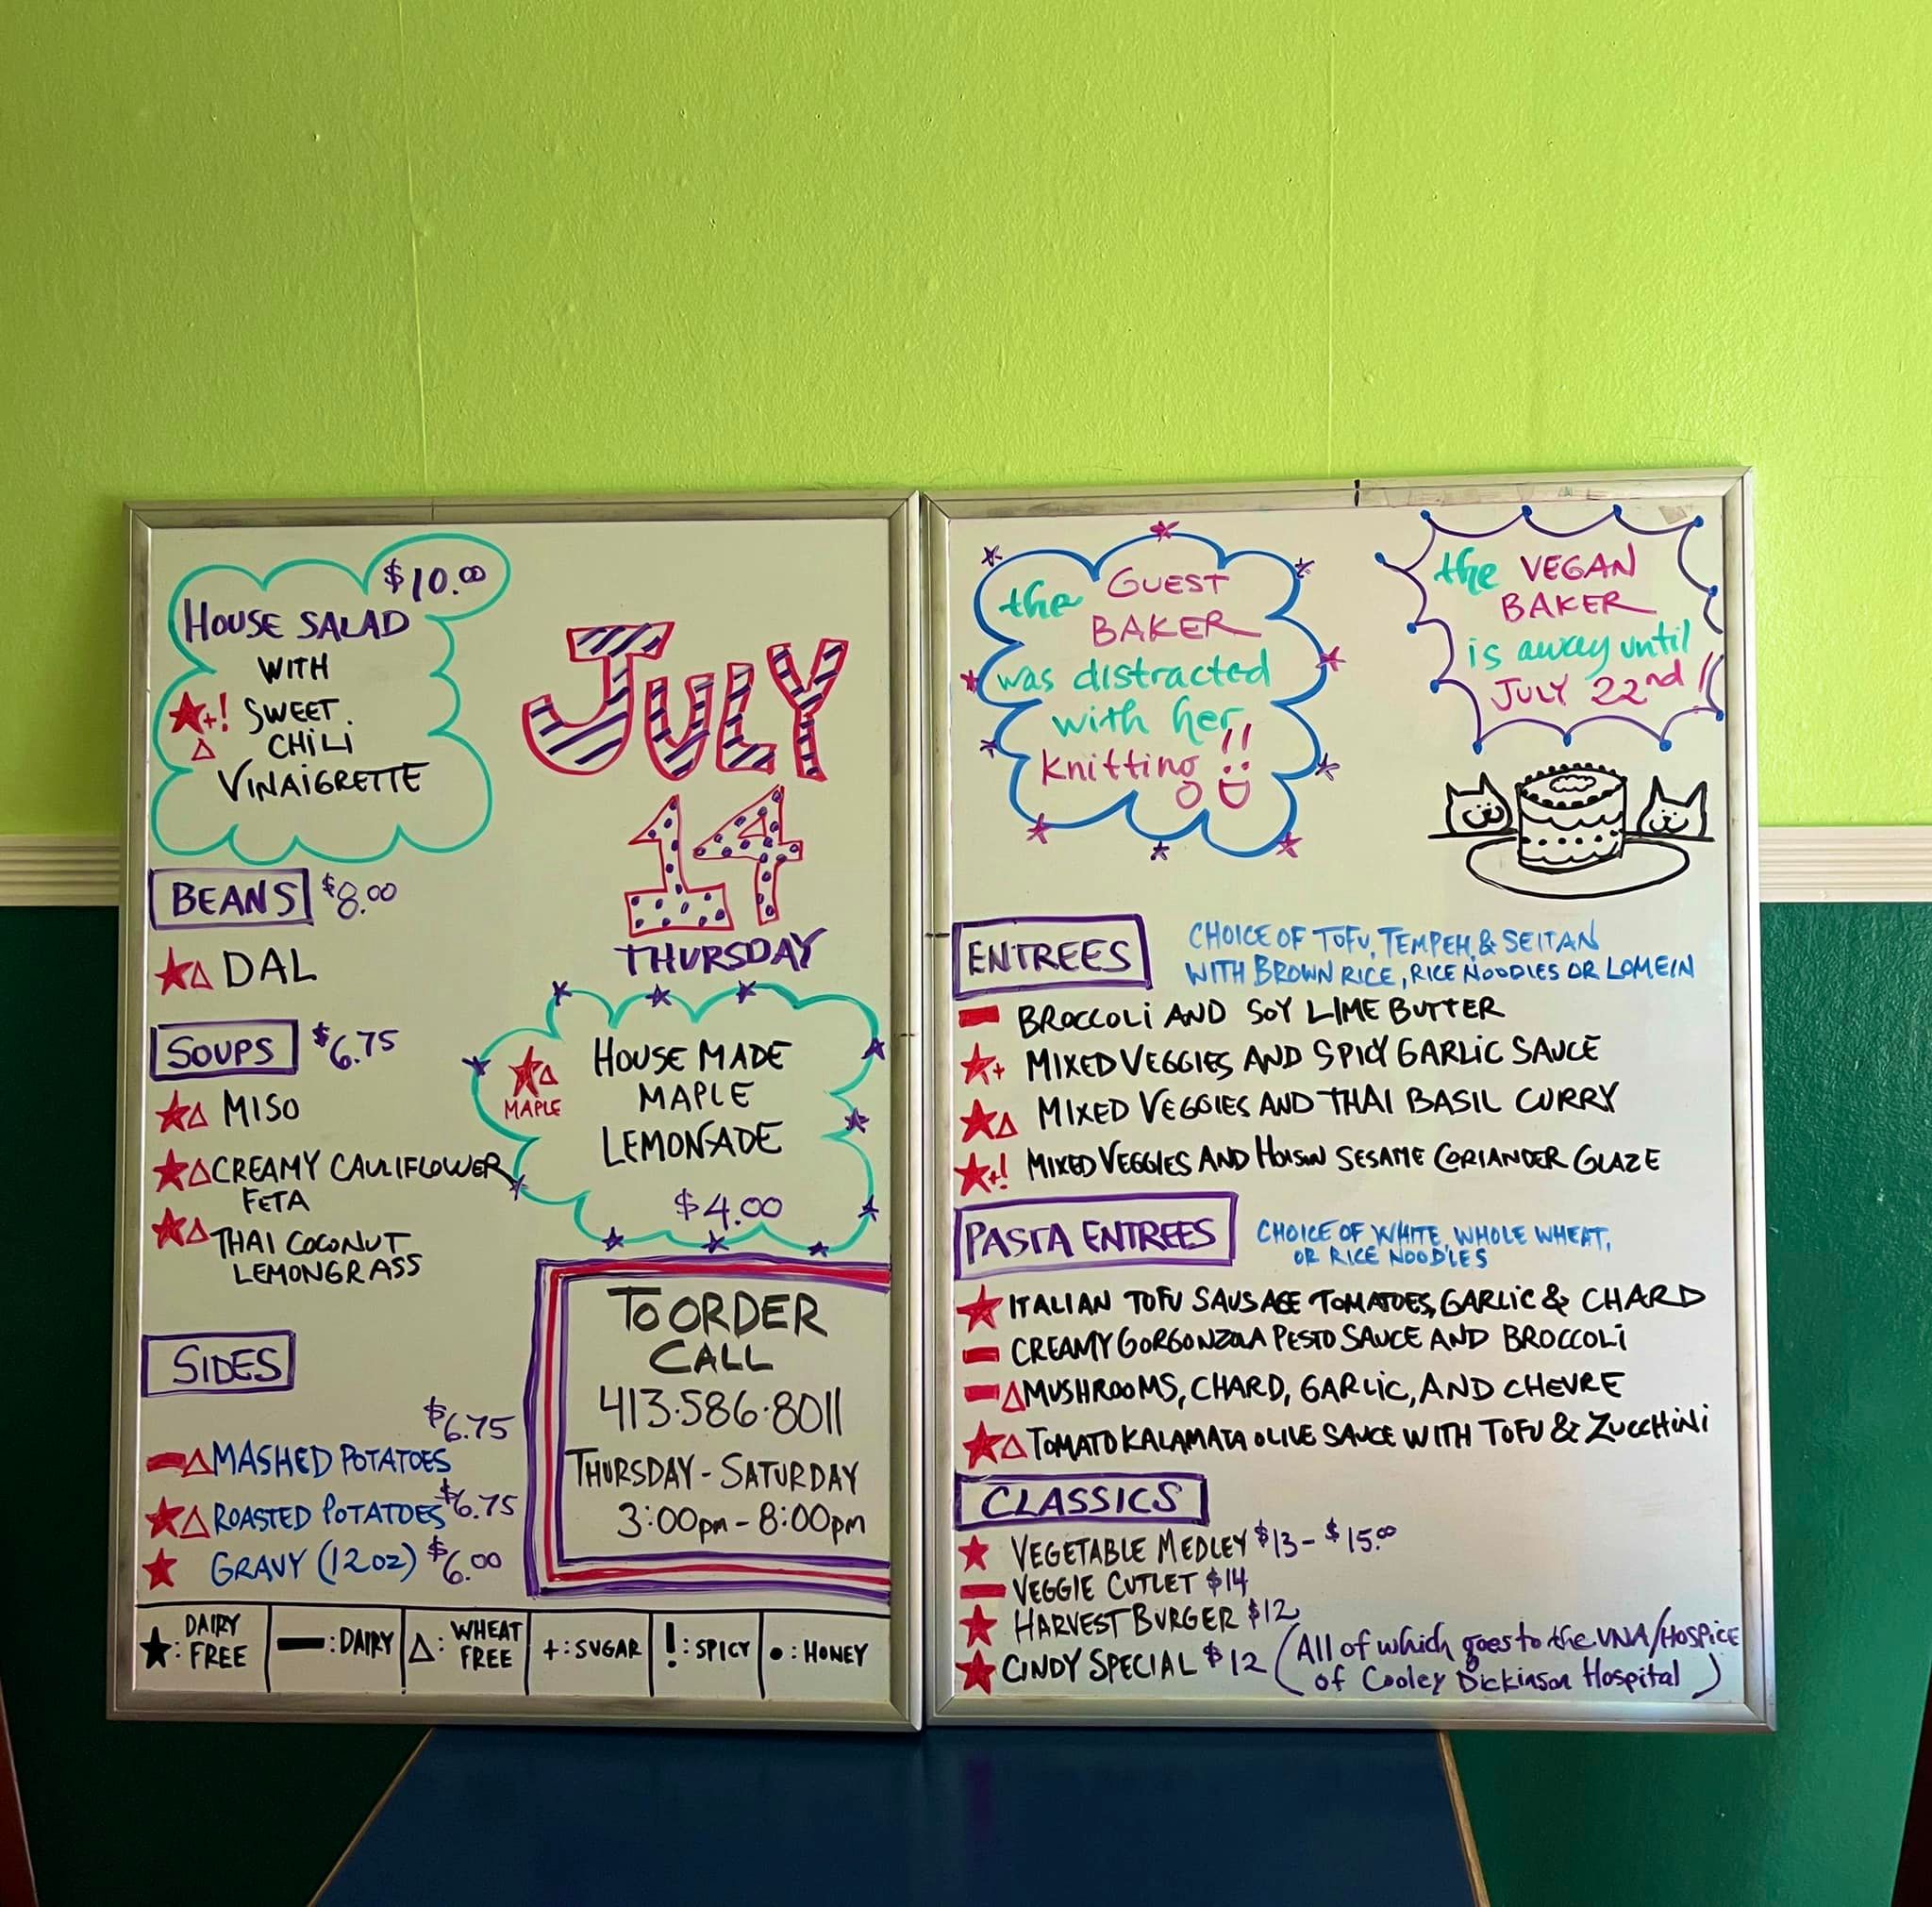 $10.00
HOUSE SALAD
WITH
★+! SWEET
△ CHILI
VINAIGRETTE
BEANS $8.00
★△ DAL
SOUPS $6.75
★△ MISO
★△ CREAMY CAULIFLOWER
FETA
★△ THAI COCONUT
LEMONGRASS
SIDES
$6.75
▬△ MASHED POTATOES
★△ ROASTED POTATOES $6.75
★ GRAVY (12 oz) $6.00
JULY
14
THURSDAY
★△ HOUSE MADE
MAPLE MAPLE
LEMONADE
$4.00
TO ORDER
CALL
413·586·8011
THURSDAY - SATURDAY
3:00pm - 8:00pm
★: DAIRY FREE
▬: DAIRY
△: WHEAT FREE
+: SUGAR
!: SPICY
●: HONEY
the GUEST
BAKER
was distracted
with her
knitting!!
the VEGAN
BAKER
is away until
JULY 22nd!!
ENTREES
CHOICE OF TOFU, TEMPEH, & SEITAN
WITH BROWN RICE, RICE NOODLES OR LOMEIN
▬ BROCCOLI AND SOY LIME BUTTER
★+ MIXED VEGGIES AND SPICY GARLIC SAUCE
★△ MIXED VEGGIES AND THAI BASIL CURRY
★+! MIXED VEGGIES AND HOISIN SESAME CORIANDER GLAZE
PASTA ENTREES
CHOICE OF WHITE, WHOLE WHEAT,
OR RICE NOODLES
★ ITALIAN TOFU SAUSAGE TOMATOES, GARLIC & CHARD
▬ CREAMY GORGONZOLA PESTO SAUCE AND BROCCOLI
▬△ MUSHROOMS, CHARD, GARLIC, AND CHEVRE
★△ TOMATO KALAMATA OLIVE SAUCE WITH TOFU & ZUCCHINI
CLASSICS
★ VEGETABLE MEDLEY $13 - $15.00
▬ VEGGIE CUTLET $14
★ HARVEST BURGER $12
★ CINDY SPECIAL $12 (All of which goes to the VNA/HOSPICE
of Cooley Dickinson Hospital)